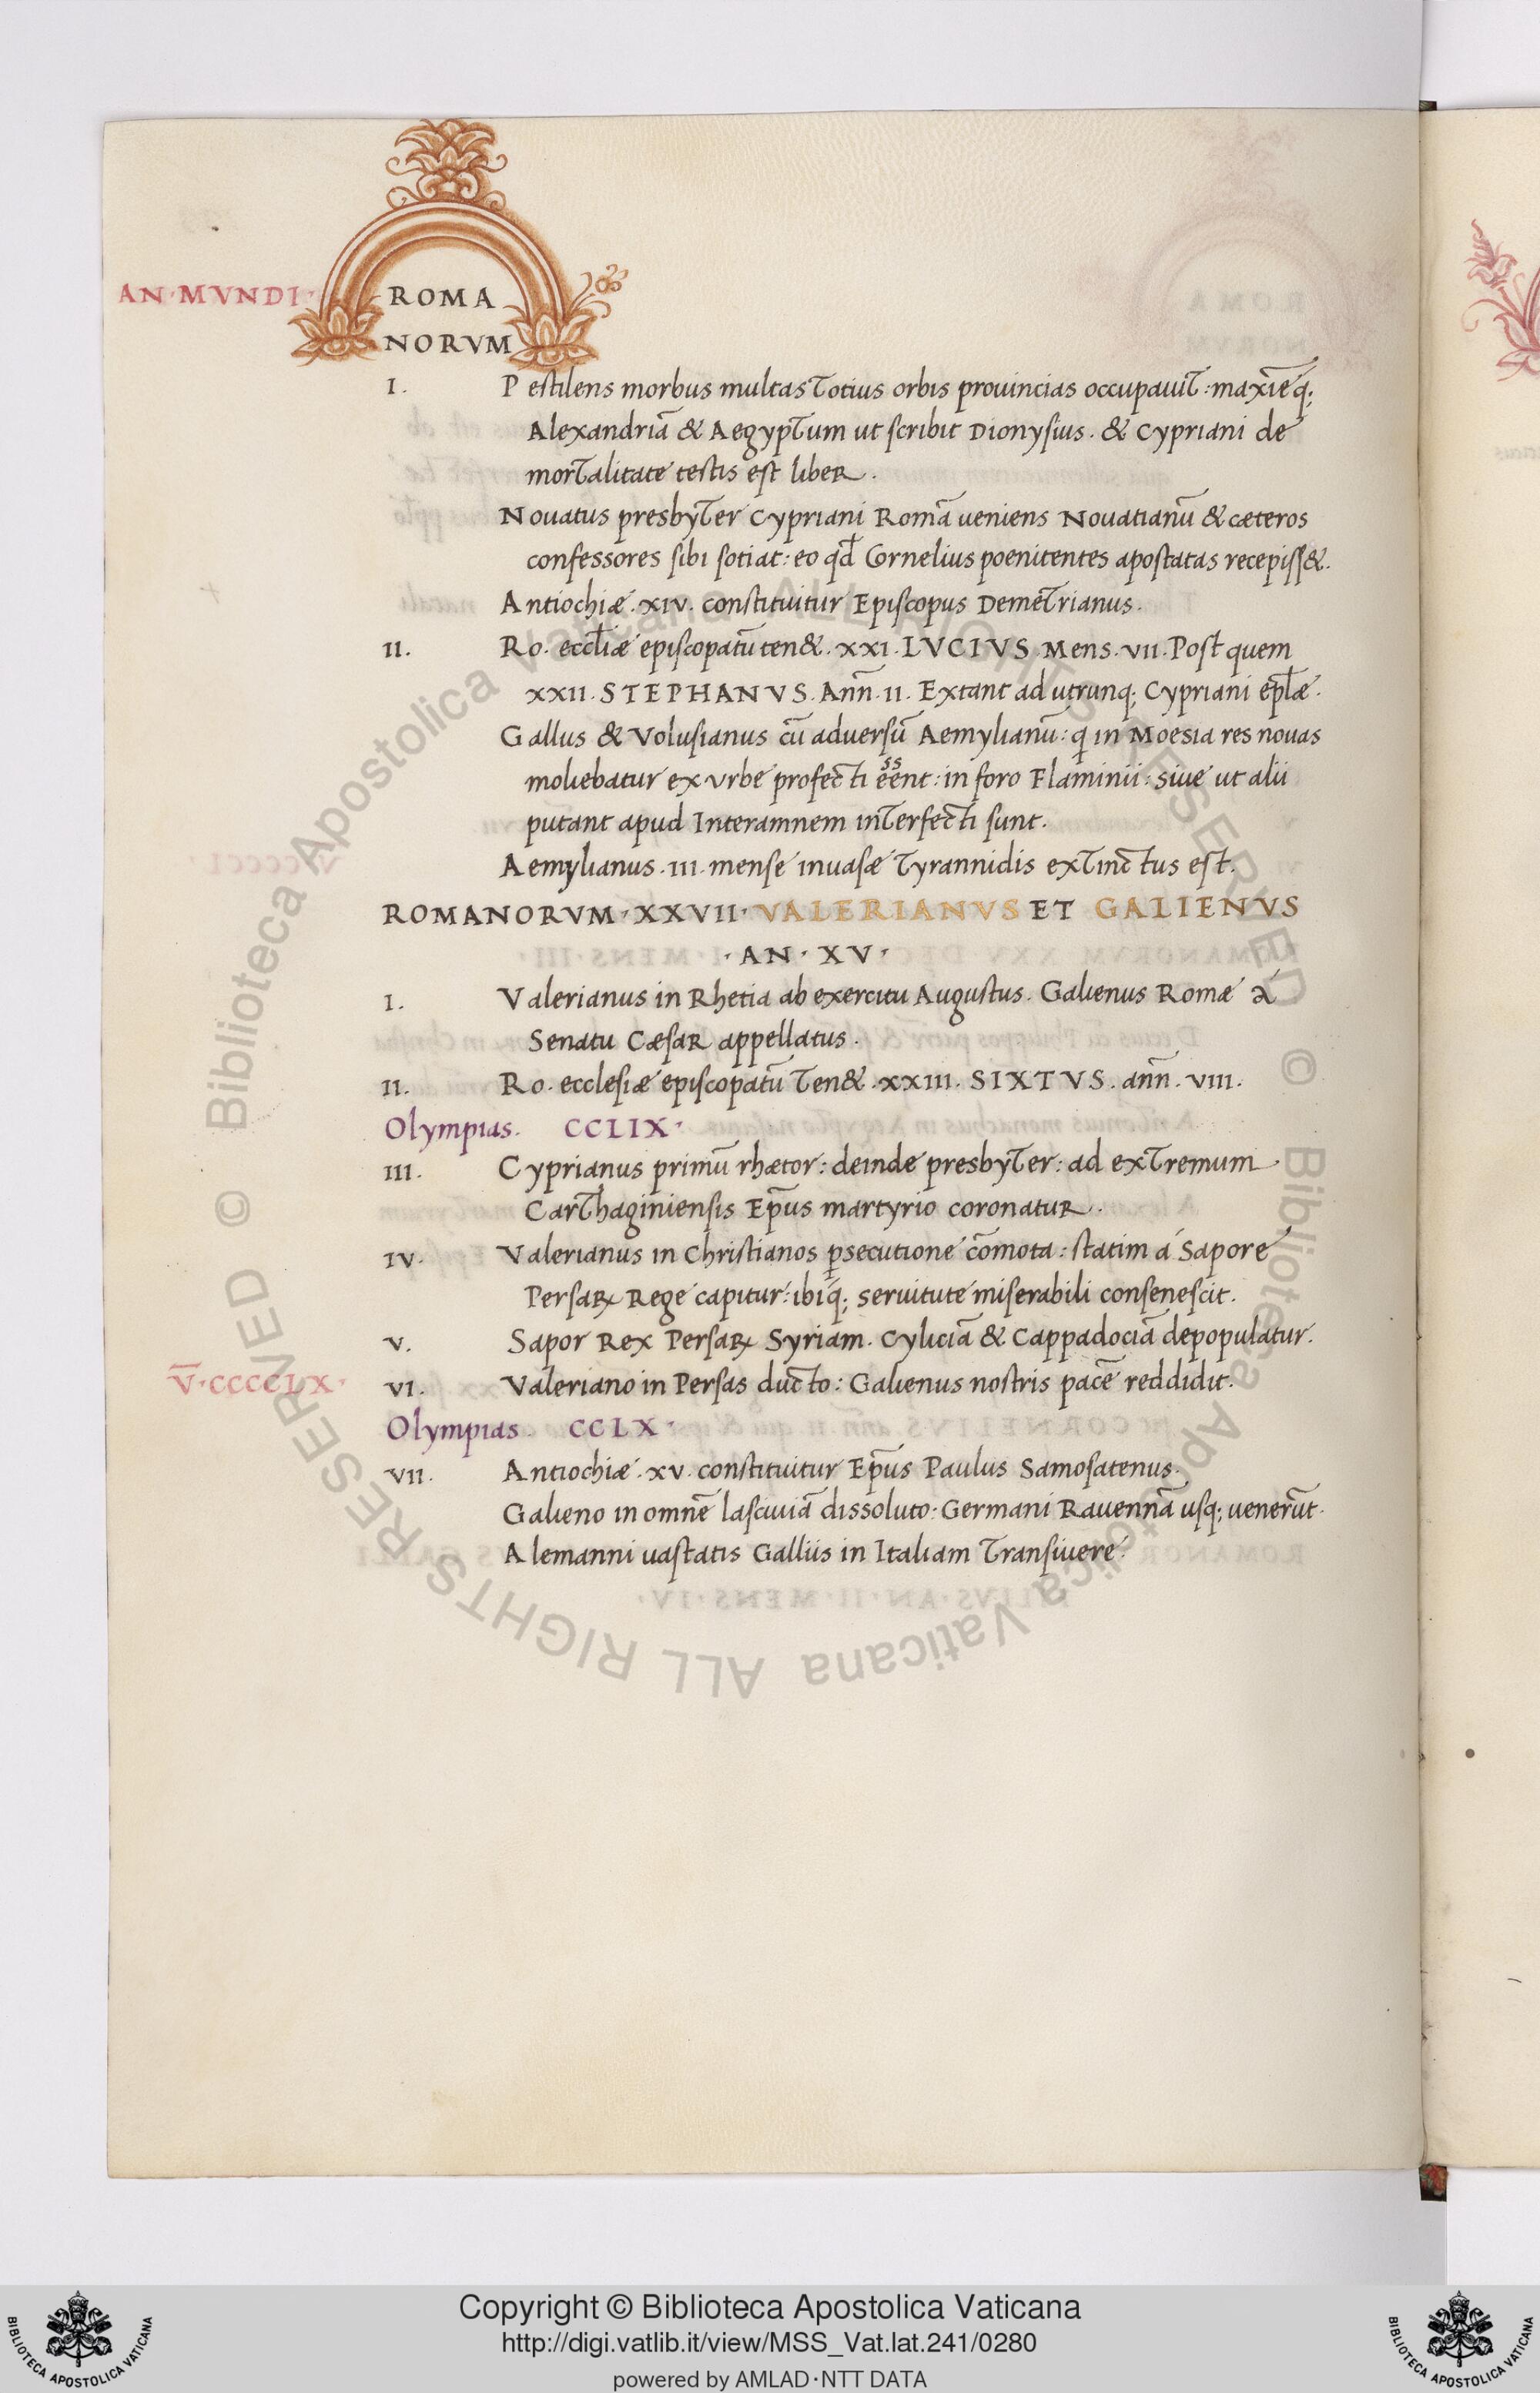 AN·MVNDI·
ROMA
NORVM
I. Pestilens morbus multas totius orbis prouincias occupauit: maxĩeq;
Alexandriã & Aegyptum ut scribit Dionysius. & Cypriani de
mortalitate testis est liber.
Nouatus presbyter Cypriani Romã ueniens Nouatianũ & cæteros
confessores sibi sotiat: eo qđ Cornelius poenitentes apostatas recepiss&.
Antiochiæ. XIV. constituitur Episcopus Demetrianus.
II. Ro. eccłiæ episcopatũ ten&. XXI. LVCIVS. Mens. VII. Post quem
XXII. STEPHANVS. Añn. II. Extant ad utrunq; Cypriani epłæ.
Gallus & Volusianus cũ aduersũ Aemylianũ: q̃ in Moesia res nouas
moliebatur ex Vrbe profecti eẽnt: in foro Flaminii: siue ut alii
putant apud Interamnem interfecti sunt.
Aemylianus. III. mense inuasæ tyrannidis extinctus est.
ROMANORVM·XXVII·VALERIANVS ET GALIENVS
·AN·XV·
I. Valerianus in Rhetia ab exercitu Augustus. Galienus Romæ à
Senatu Cæsar appellatus.
II. Ro. ecclesiæ episcopatũ ten&. XXIII. SIXTVS. añn. VIII.
Olympias. CCLIX·
III. Cyprianus primũ rhætor: deinde presbyter: ad extremum
Carthaginiensis Ep̃us martyrio coronatur.
IV. Valerianus in Christianos ꝑsecutione cõmota: statim á Sapore
Persaꝝ Rege capitur: ibiq́; seruitute miserabili consenescit.
V. Sapor Rex Persaꝝ Syriam. Cyliciã & Cappadociã depopulatur.
V̅·CCCCLX· VI. Valeriano in Persas ducto: Galienus nostris pacẽ reddidit.
Olympias. CCLX·
VII. Antiochiæ. XV. constituitur Ep̃us Paulus Samosatenus.
Galieno in omnẽ lasciuiã dissoluto: Germani Rauennã usq; uenerũt.
Alemanni uastatis Galliis in Italiam transiuere.
© Biblioteca Apostolica Vaticana ALL RIGHTS RESERVED © Biblioteca Apostolica Vaticana ALL RIGHTS RESERVED
BIBLIOTECA APOSTOLICA VATICANA
Copyright © Biblioteca Apostolica Vaticana
http://digi.vatlib.it/view/MSS_Vat.lat.241/0280
powered by AMLAD·NTT DATA
BIBLIOTECA APOSTOLICA VATICANA